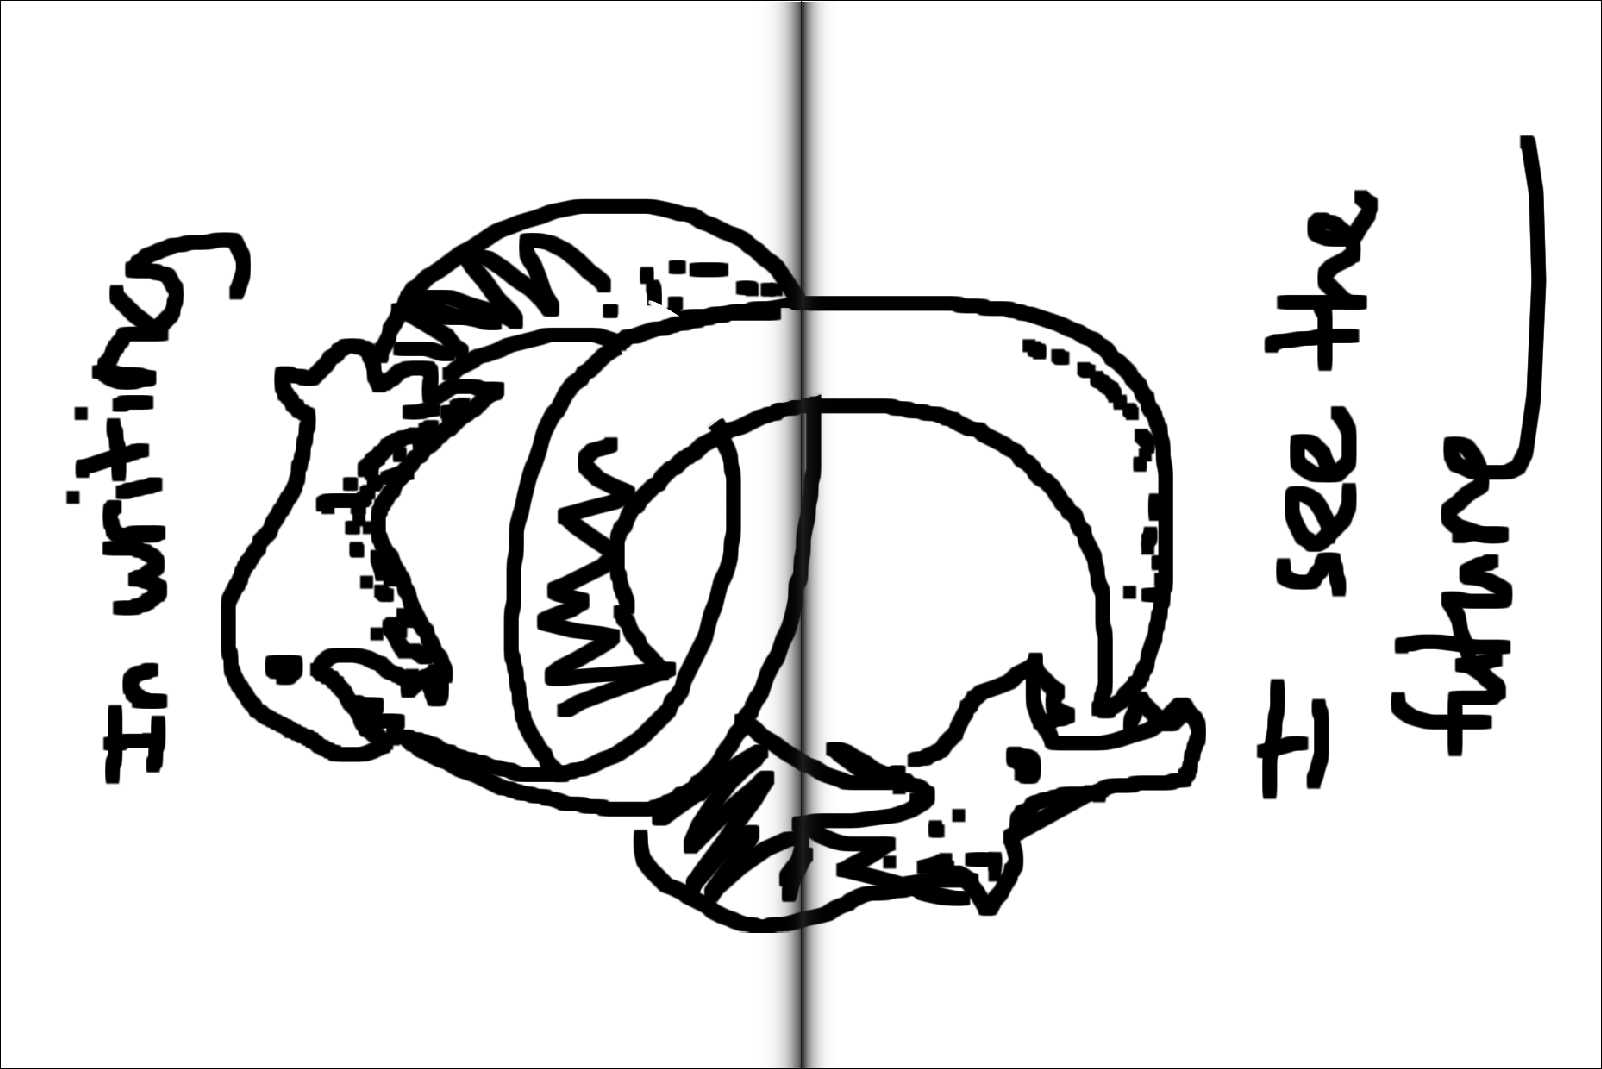 In writing
I see the
future